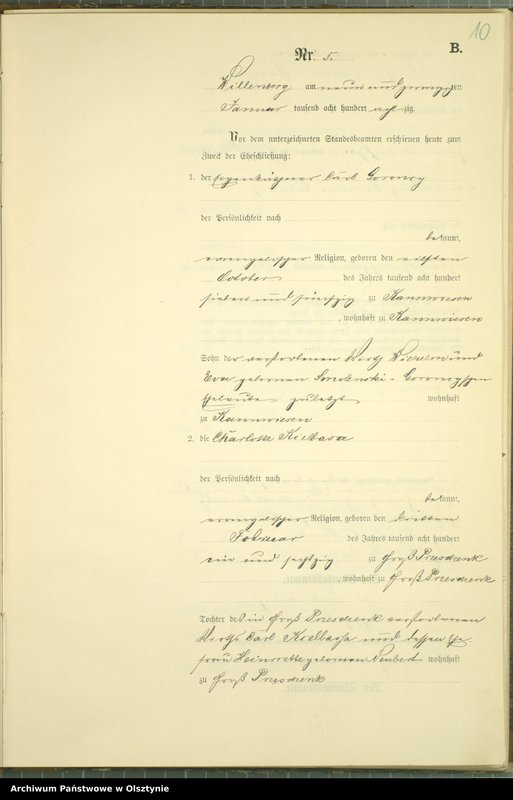 10
B.
Nr. 5.
Willenberg am neun und zwanzigsten
Januar tausend acht hundert achtzig
Vor dem unterzeichneten Standesbeamten erschienen heute zum
Zweck der Eheschließung:
1. der Eigenkäthner Carl
der Persönlichkeit nach
bekannt,
evangelischer Religion, geboren den elften
October des Jahres tausend acht hundert
sieben und fünfzig zu Kannwiesen
, wohnhaft zu Kannwiesen
Sohn der verstorbenen Wirth und
Eva geborenen Smolenski -
Eheleute zuletzt wohnhaft
zu Kannwiesen
2. die Charlotte Kielbasa
der Persönlichkeit nach
bekannt,
evangelischer Religion, geboren den dritten
Februar des Jahres tausend acht hundert
ein und sechzig zu Groß Przesdzenk
, wohnhaft zu Groß Przesdzenk
Tochter des in Groß Przesdzenk verstorbenen
Wirths Carl Kielbassa und dessen Ehe-
frau Heinriette geborenen Neubert wohnhaft
zu Groß Przesdzenk
Archiwum Państwowe w Olsztynie